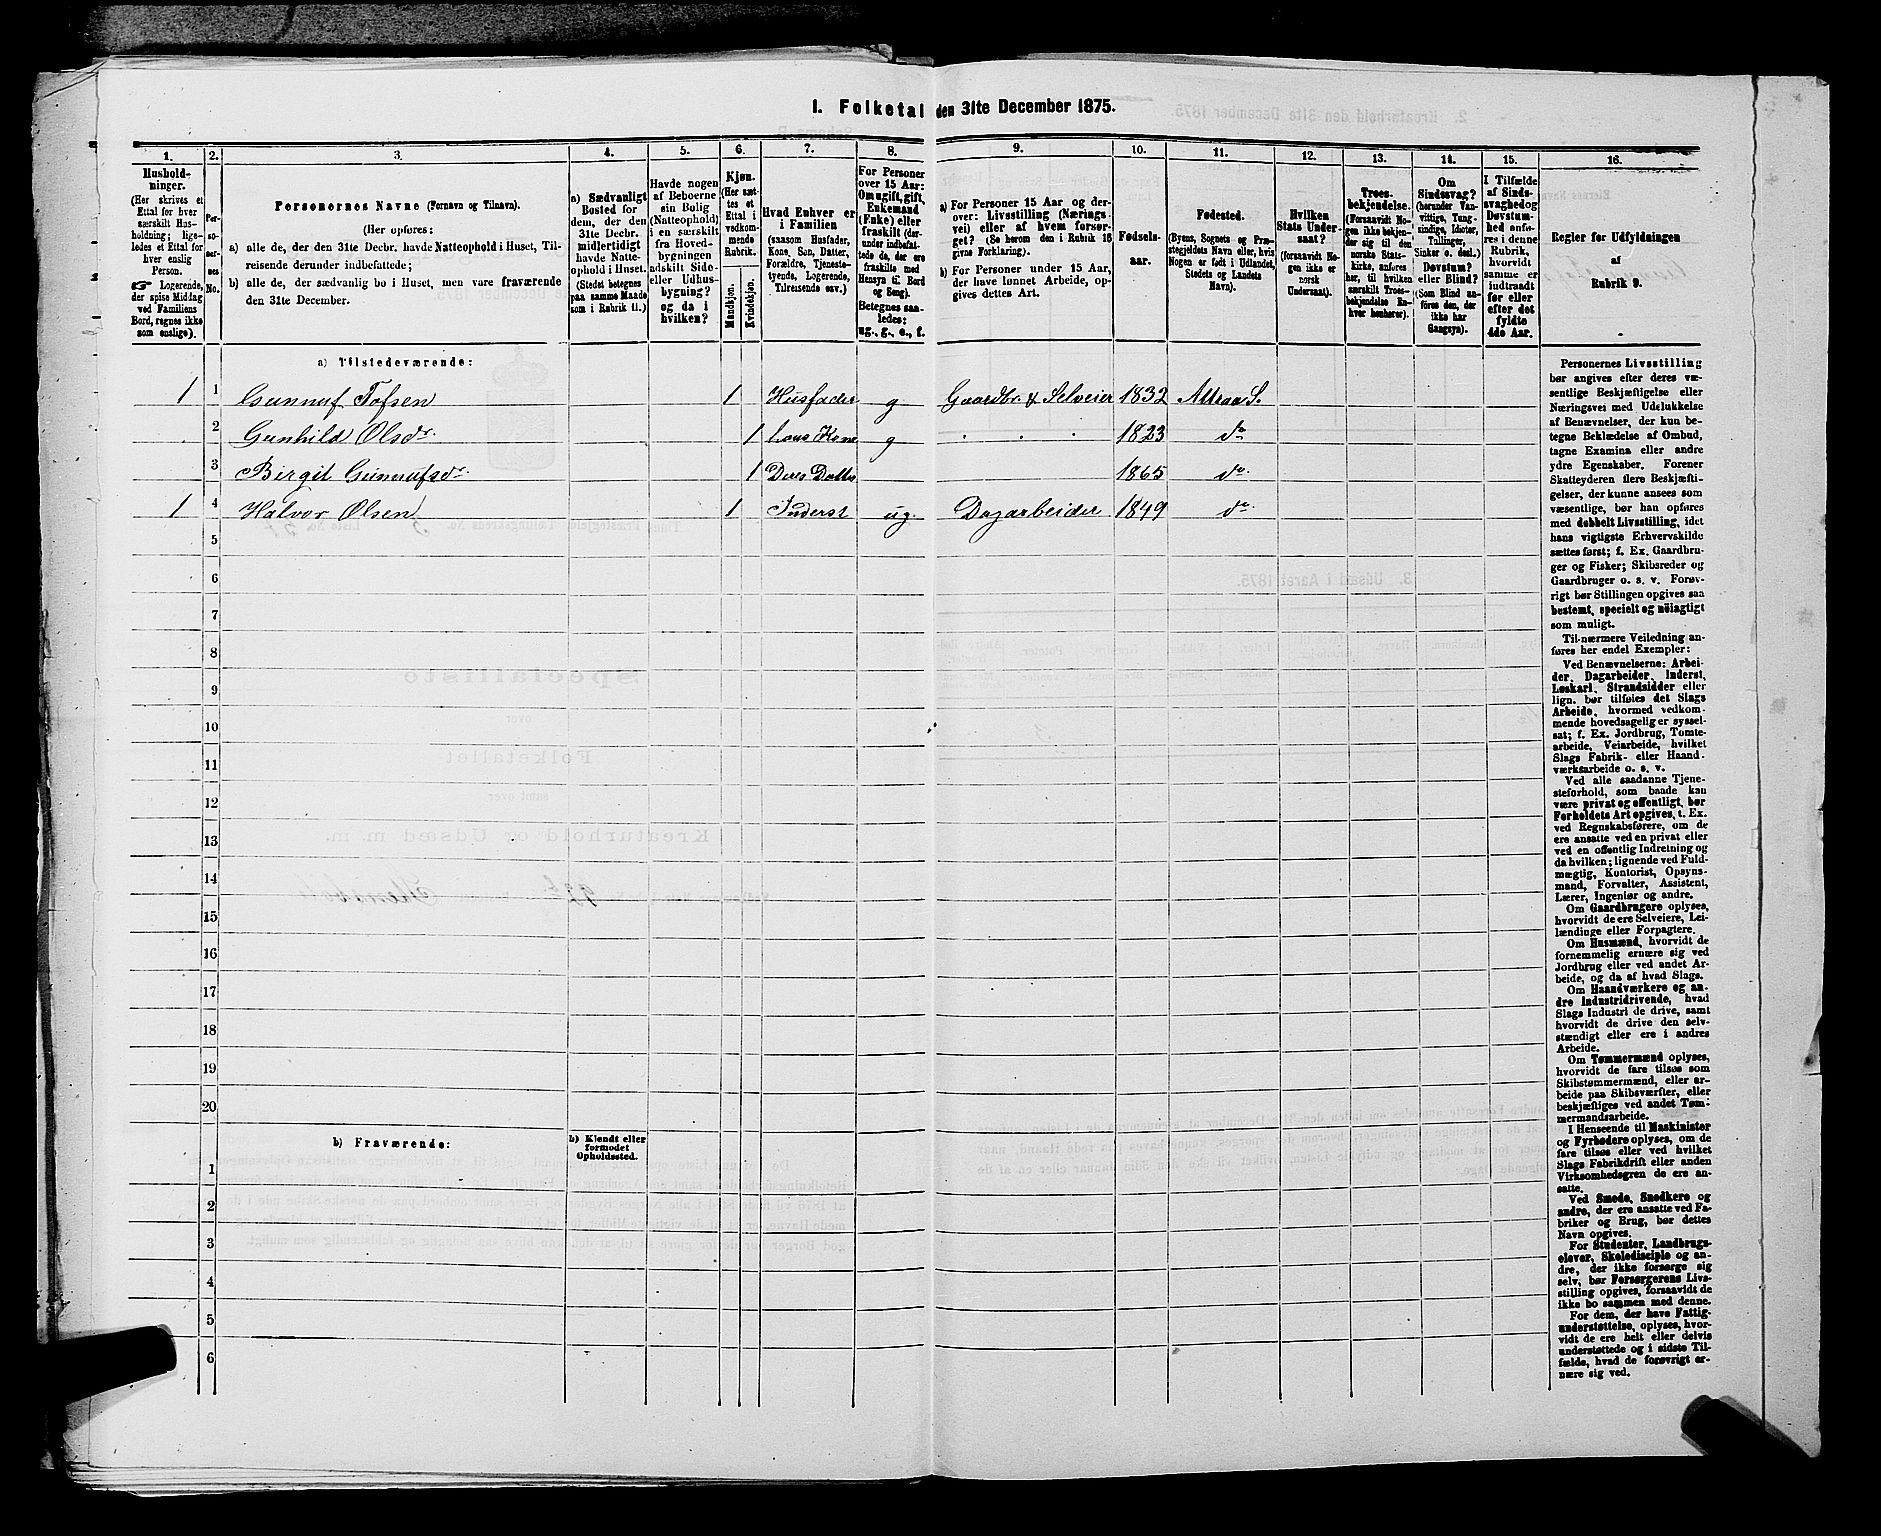 I. Folketal den 31te December 1875.
1. 2. 3. 4. 5. 6. 7. 8. 9. 10. 11. 12. 13. 14. 15. 16.
Husholdninger.
(Her skrives et
Ettal for hver
særskilt Husholdning; ligeledes
et Ettal for
hver enslig
Person.
☞ Logerende,
der spise Middag
ved Familiens
Bord, regnes ikke
som enslige).
Personernes No.
Personernes Navne (Fornavn og Tilnavn).
(Her opføres:
a) alle de, der den 31te Decbr. havde Natteophold i Huset, Tilreisende derunder indbefattede;
b) alle de, der sædvanlig bo i Huset, men vare fraværende
den 31te December.
a) Sædvanligt
Bosted for
dem, der den
31te Decbr.
midlertidigt
havde Natteophold i Huset.
(Stedet betegnes
paa samme Maade
som i Rubrik 11.)
Havde nogen
af Beboerne
sin Bolig
(Natteophold)
i en særskilt
fra Hovedbygningen
adskilt Side-
eller Udhusbygning?
og da i
hvilken?
Kjøn.
(Her sættes et
Ettal i
vedkommende
Rubrik.
Mandkjøn.
Kvindekjøn.
Hvad Enhver er
i Familien
(saasom Husfader,
Kone, Søn, Datter,
Forældre, Tjenestetyende, Logerende,
Tilreisende osv.)
For Personer
over 15 Aar:
Om ugift, gift,
Enkemand
(Enke) eller
fraskilt (derunder indbefattede de, der ere
fraskilte med
Hensyn til Bord
og Seng).
Betegnes saaledes:
ug., g., e., f.
a) For Personer 15 Aar og derover: Livsstilling (Næringsvei) eller af hvem forsørget? (Se herom den i Rubrik 16
givne Forklaring).
b) For Personer under 15 Aar,
der have lønnet Arbeide, opgives dettes Art.
Fødselsaar.
Fødested.
(Byens, Sognets og Præstegjeldets Navn eller, hvis
Nogen er født i Udlandet,
Stedets og Landets
Navn).
Hvilken
Stats Undersaat?
(forsaavidt Nogen ikke er
norsk
Undersaat).
Troesbekjendelse.
(Forsaavidt Nogen ikke bekjender sig til den
norske Statskirke, anføres
her, til hvilken
særskilt Troesbekjendelse Enhver henhører).
Om
Sindssvag?
(herunder Vanvittige, Tungsindige, Idioter,
Tullinger,
Sinker o. desl.)
Døvstum?
eller Blind?
(Som Blind anføres den, der
ikke har
Gangsyn).
I Tilfælde
af Sindssvaghed og
Døvstumhed anføres i denne
Rubrik,
hvorvidt
samme er
indtraadt
før eller
efter det
fyldte
4de Aar.
Regler for Udfyldningen
af
Rubrik 9.
a) Tilstedeværende:
1 1 Gunnuf Tofsen 1 Husfader g Gaardbr. & Selveier 1832 Attraa S.
2 Gunhild Olsdr. 1 hans Kone g 1823 do
3 Birgit Gunnufsdr. 1 Deres Datter 1865 do
1 4 Halvor Olsen 1 Inderst ug. Dagarbeider 1849 do
5
6
7
8
9
10
11
12
13
14
15
16
17
18
19
20
b) Fraværende:
b) Kjendt eller
formodet
Opholdssted.
1
2
3
4
5
6
Personernes Livsstilling
bør angives efter deres væsentlige Beskjæftigelse eller
Næringsvei med Udelukkelse
af Benævnelser, der kun betegne Beklædelse af Ombud,
tagne Examina eller andre
ydre Egenskaber. Forener
Skatteyderen flere Beskjæftigelser, der kunne ansees som
væsentlige, bør han opføres
med dobbelt Livsstilling, idet
hans vigtigste Erhvervskilde
sættes først; f. Ex. Gaardbruger og Fisker; Skibsreder og
Gaardbruger o. s. v. Forøvrigt bør Stillingen opgives saa
bestemt, specielt og nøiagtigt
som muligt.
Til nærmere Veiledning anføres her endel Exempler:
Ved Benævnelserne: Arbeider, Dagarbeider, Inderst,
Løskarl, Strandsidder eller
lign. bør tilføies det Slags
Arbeide, hvormed vedkommende hovedsagelig er sysselsat; f. Ex. Jordbrug, Tomtearbeide, Veiarbeide, hvilket
Slags Fabrik- eller Haandværksarbeide o. s. v.
Ved alle saadanne Tjenesteforhold, som baade kan
være privat og offentligt, bør
Forholdets Art opgives, t. Ex.
ved Regnskabsførere, om de
ere ansatte ved en privat eller
ved en offentlig Indretning og
da hvilken; lignende ved Fuldmægtig, Kontorist, Opsynsmand, Forvalter, Assistent,
Lærer, Ingeniør og andre.
Om Gaardbrugere oplyses,
hvorvidt de ere Selveiere, Leilændinge eller Forpagtere.
Om Husmænd, hvorvidt de
fornemmelig ernære sig ved
Jordbrug eller ved andet Arbeide, og da af hvad Slags.
Om Haandværkere og andre Industridrivende, hvad
Slags Industri de drive, samt
hvorvidt de drive den selvstændigt eller ere i andres
Arbeide.
Om Tømmermænd oplyses,
hvorvidt de fare tilsøs som
Skibstømmermænd, eller arbeide paa Skibsværfter, eller
beskjæftiges ved andet Tømmermandsarbeide.
I Henseende til Maskinister
og Fyrbødere oplyses, om de
fare tilsøs eller ved hvilket
Slags Fabrikdrift eller anden
Virksomhedsgren de ere ansatte.
Ved Smede, Snedkere og
andre, der ere ansatte ved Fabriker og Brug, bør dettes
Navn opgives.
For Studenter, Landbrugselever, Skoledisciple og andre, der ikke forsørge sig
selv, bør Forsørgerens Livsstilling opgives, forsaavidt de
ikke bo sammen med denne.
For dem, der have Fattigunderstøttelse, oplyses, hvorvidt de ere helt eller delvis
understøttede og i sidste Tilfælde, hvad de forøvrigt ernære sig ved.